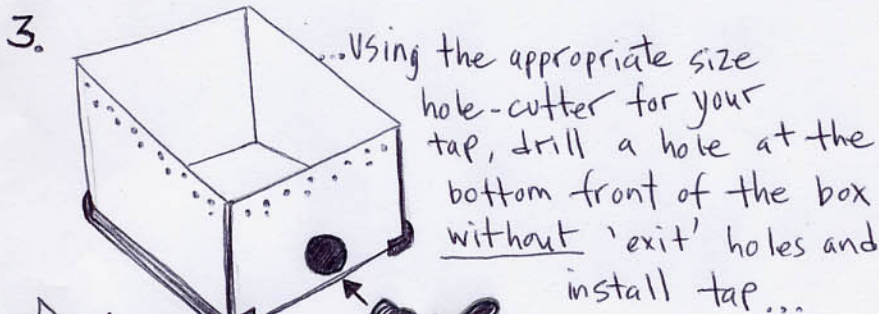 3.
...Using the appropriate size
hole-cutter for your
tap, drill a hole at the
bottom front of the box
without 'exit' holes and
install tap...